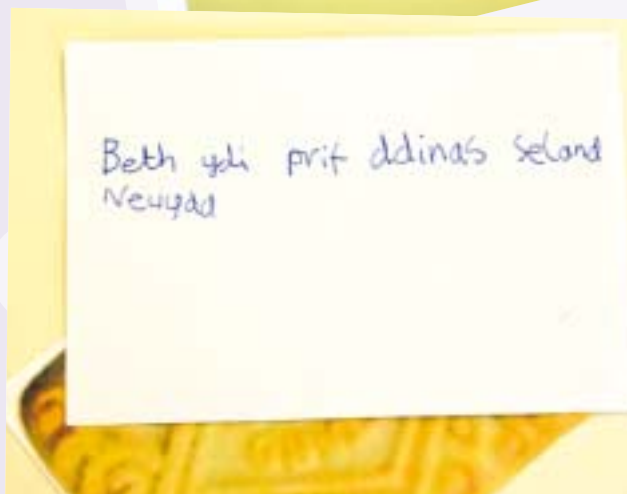 Beth ydi prif ddinas Seland
Newydd